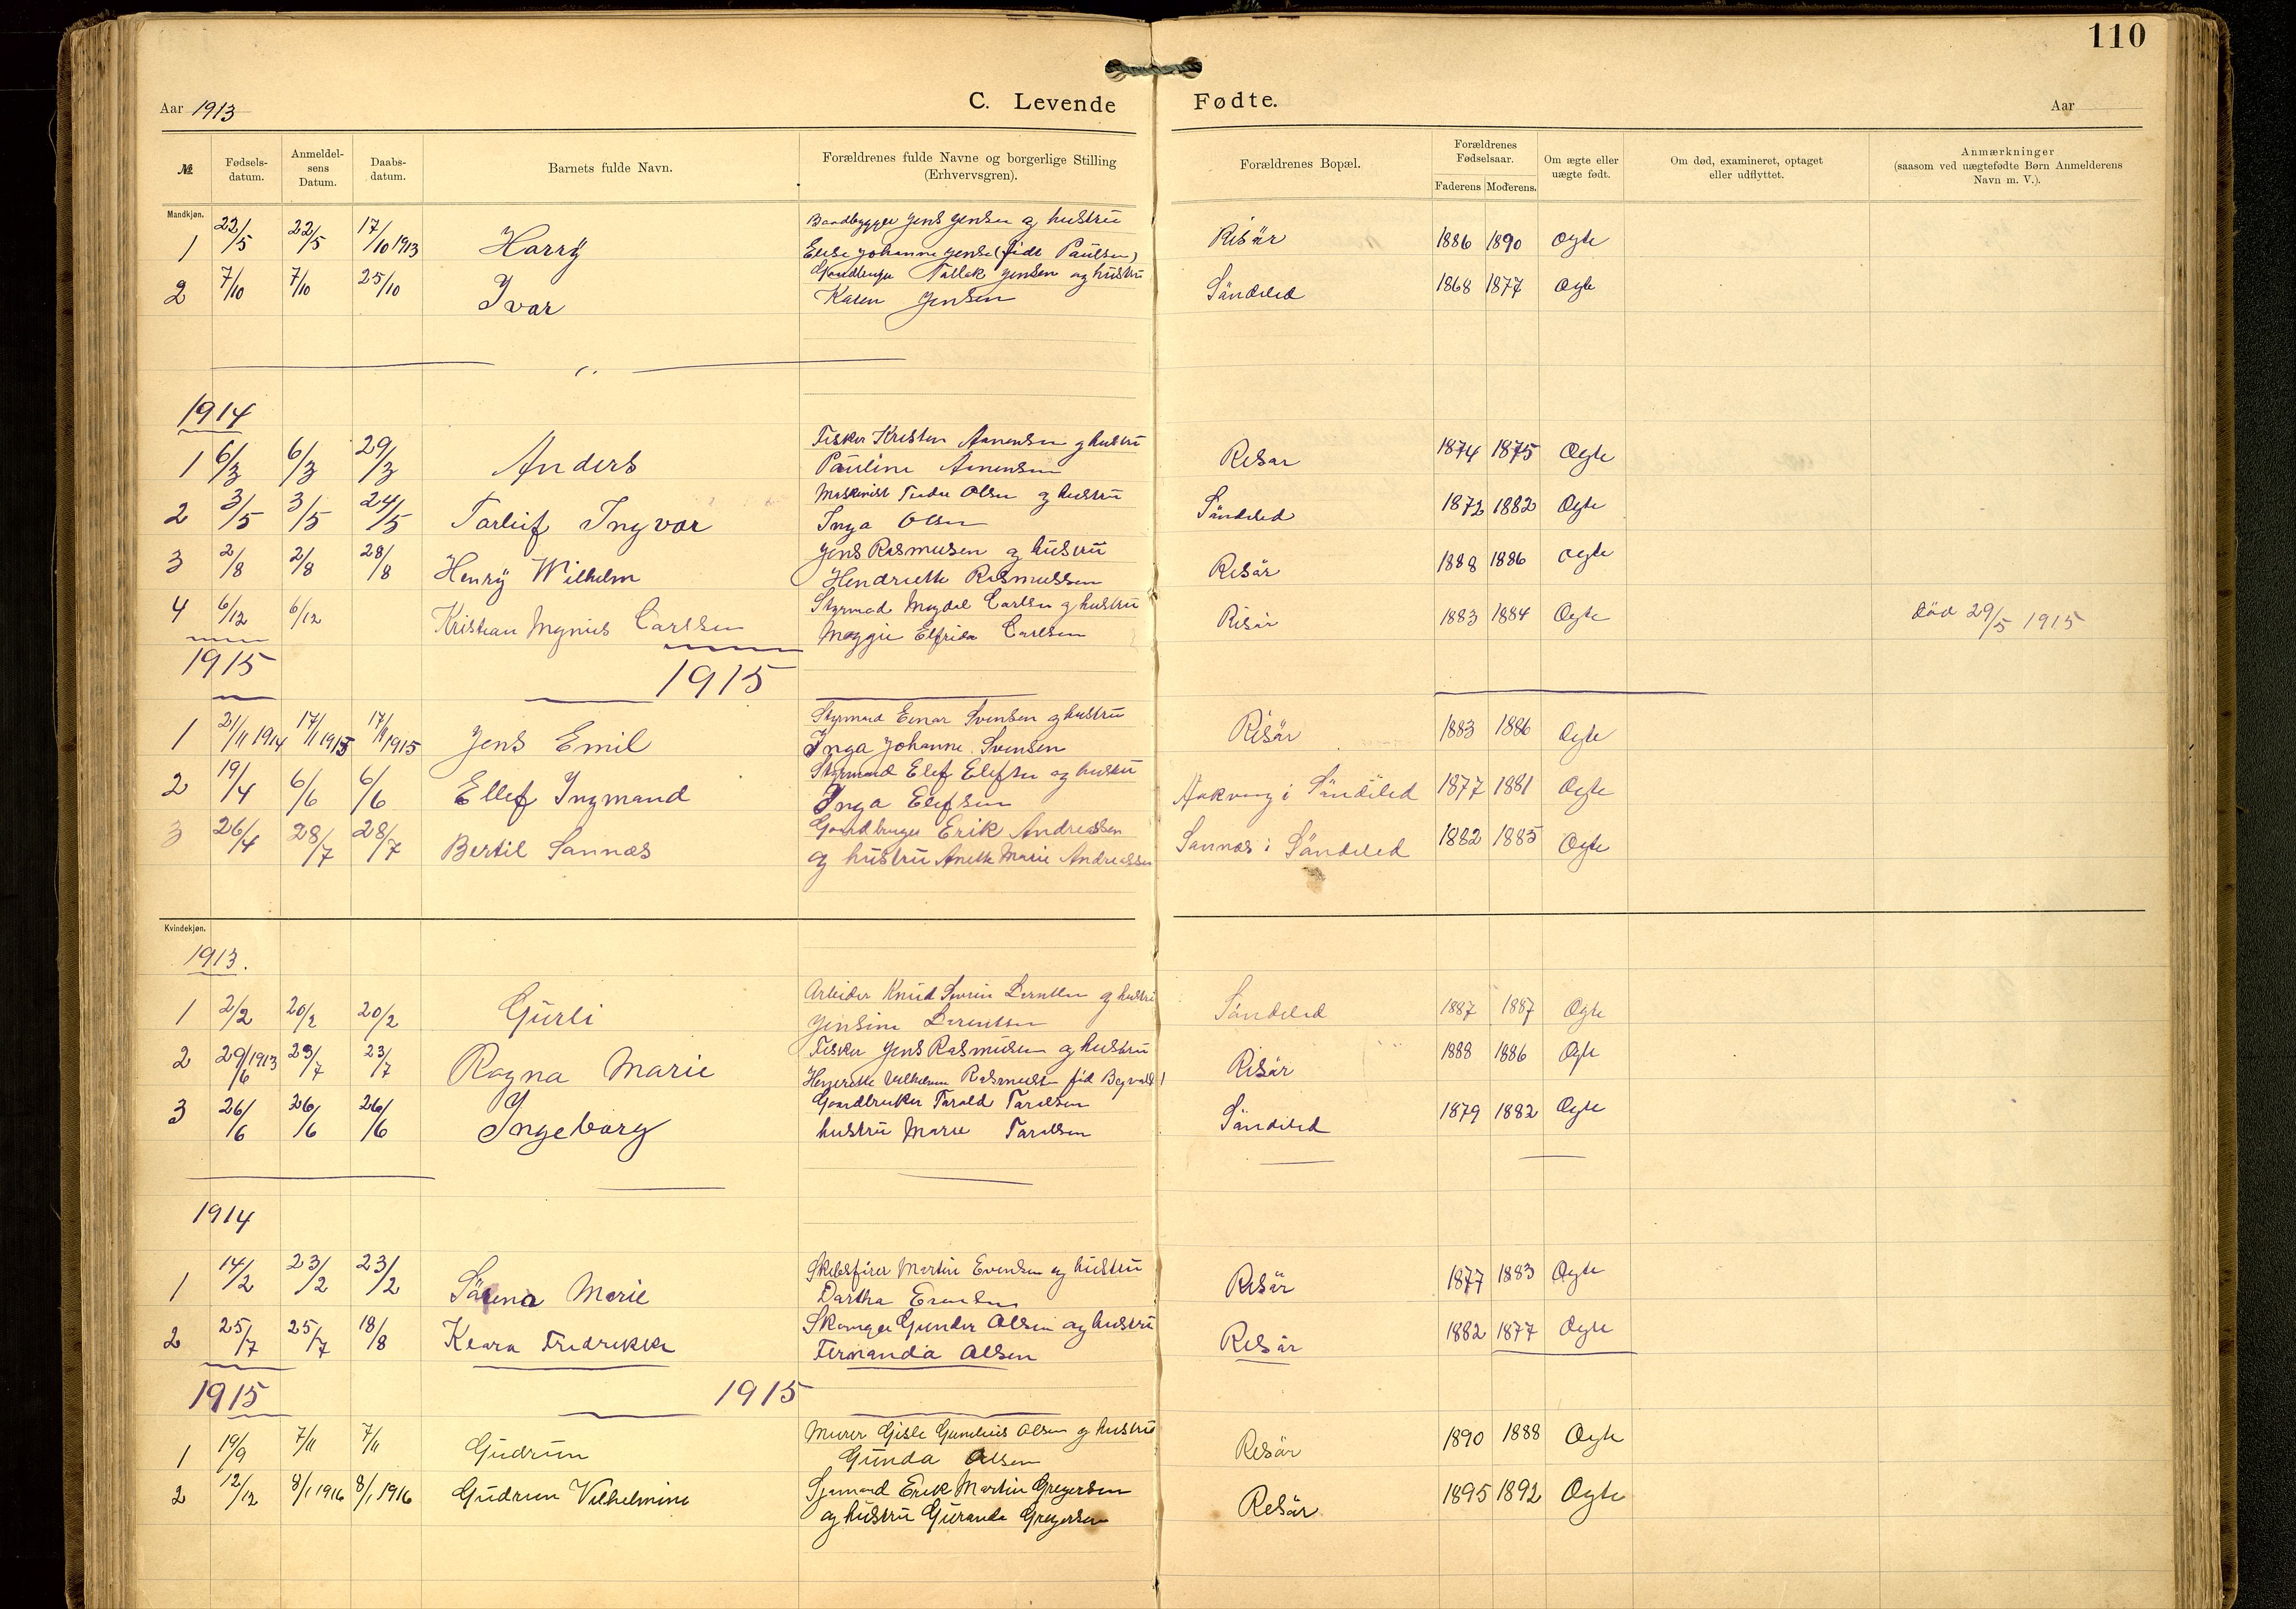 110
Aar 1913
C. Levende Fødte.
Aar
№
Fødsels-datum.
Anmeldel-sens Datum.
Daabs-datum.
Barnets fulde Navn.
Forældrenes fulde Navne og borgerlige Stilling (Erhvervsgren).
Forældrenes Bopæl.
Forældrenes Fødselsaar.
Faderens Moderens.
Om ægte eller uægte født.
Om død, examineret, optaget eller udflyttet.
Anmærkninger (saasom ved uægtefødte Børn Anmelderens Navn m. V.).
Mandkjøn.
Jens Jensen og hustru
1 22/5 22/5 17/10 1913 Harry Elise Johanne Jensen (föd Paulsen) Risör 1886 1890 Ogte
Tallak Jensen og hustru
2 7/10 7/10 25/10 Ivar Karen Jensen Söndeled 1868 1877 Ogte
1914
Fisker Kristen Aanensen og hustru
1 6/3 6/3 29/3 Anders Pauline Aanensen Risör 1874 1875 Ogte
Maskinist Olsen og hustru
2 3/5 3/5 24/5 Torleif Ingvar Inga Olsen Söndeled 1872 1882 Ogte
Jens Rasmusen og hustru
3 2/8 2/8 28/8 Henry Wilhelm Hendriette Rasmussen Risör 1888 1886 Ogte
Styrmad Carlsen og hustru
4 6/12 6/12 Kristian Carlsen Maggie Elfrida Carlsen Risör 1883 1884 Ogte död 29/5 1915
1915
1915
Styrmand Einar Svensen og hustru
1 21/11 1914 17/1 1915 17/1 1915 Jens Emil Inga Johanne Svensen Risör 1883 1886 Ogte
Styrmand Elef Elefsen og hustru
2 19/4 6/6 6/6 Ellef Ingmand Inga Elefsen i Söndeled 1877 1881 Ogte
Gaardbruger Erik Andreassen
3 26/4 28/7 28/7 Bertil Sannes og hustru Anette Marie Andreassen Sannes i Söndeled 1882 1885 Ogte
Kvindekjøn.
1913.
Arbeider Knud Severin Berntsen og hustru
1 2/2 20/2 20/2 Gurli Jensine Söndeled 1887 1887 Ogte
Fisker Jens Rasmusen og hustru
2 29/6 1913 23/7 23/7 Ragna Marie Rasmussen föd Risör 1888 1886 Ogte
Gaardbruker Tarald Taralsen
3 26/6 26/6 26/6 Ingeborg hustru Marie Taralsen Söndeled 1879 1882 Ogte
1914
Skibsfører Martin Evensen og hustru
1 14/2 23/2 23/2 Marie Dartha Evensen Risör 1877 1883 Ogte
Gunder Olsen og hustru
2 25/7 25/7 18/8 Klara Fredrikke Fernanda Olsen Risör 1882 1877 Ogte
1915
1915
Murer Gisle Gunelius Olsen og hustru
1 19/9 7/11 7/11 Gudrun Gunda Olsen Risör 1890 1888 Ogte
Sjømand Erik Martin Gregersen
2 12/12 8/1 1916 8/1 1916 Gudrun Vilhelmine Risör 1895 1892 Ogte
og hustru Guranda Gregersen